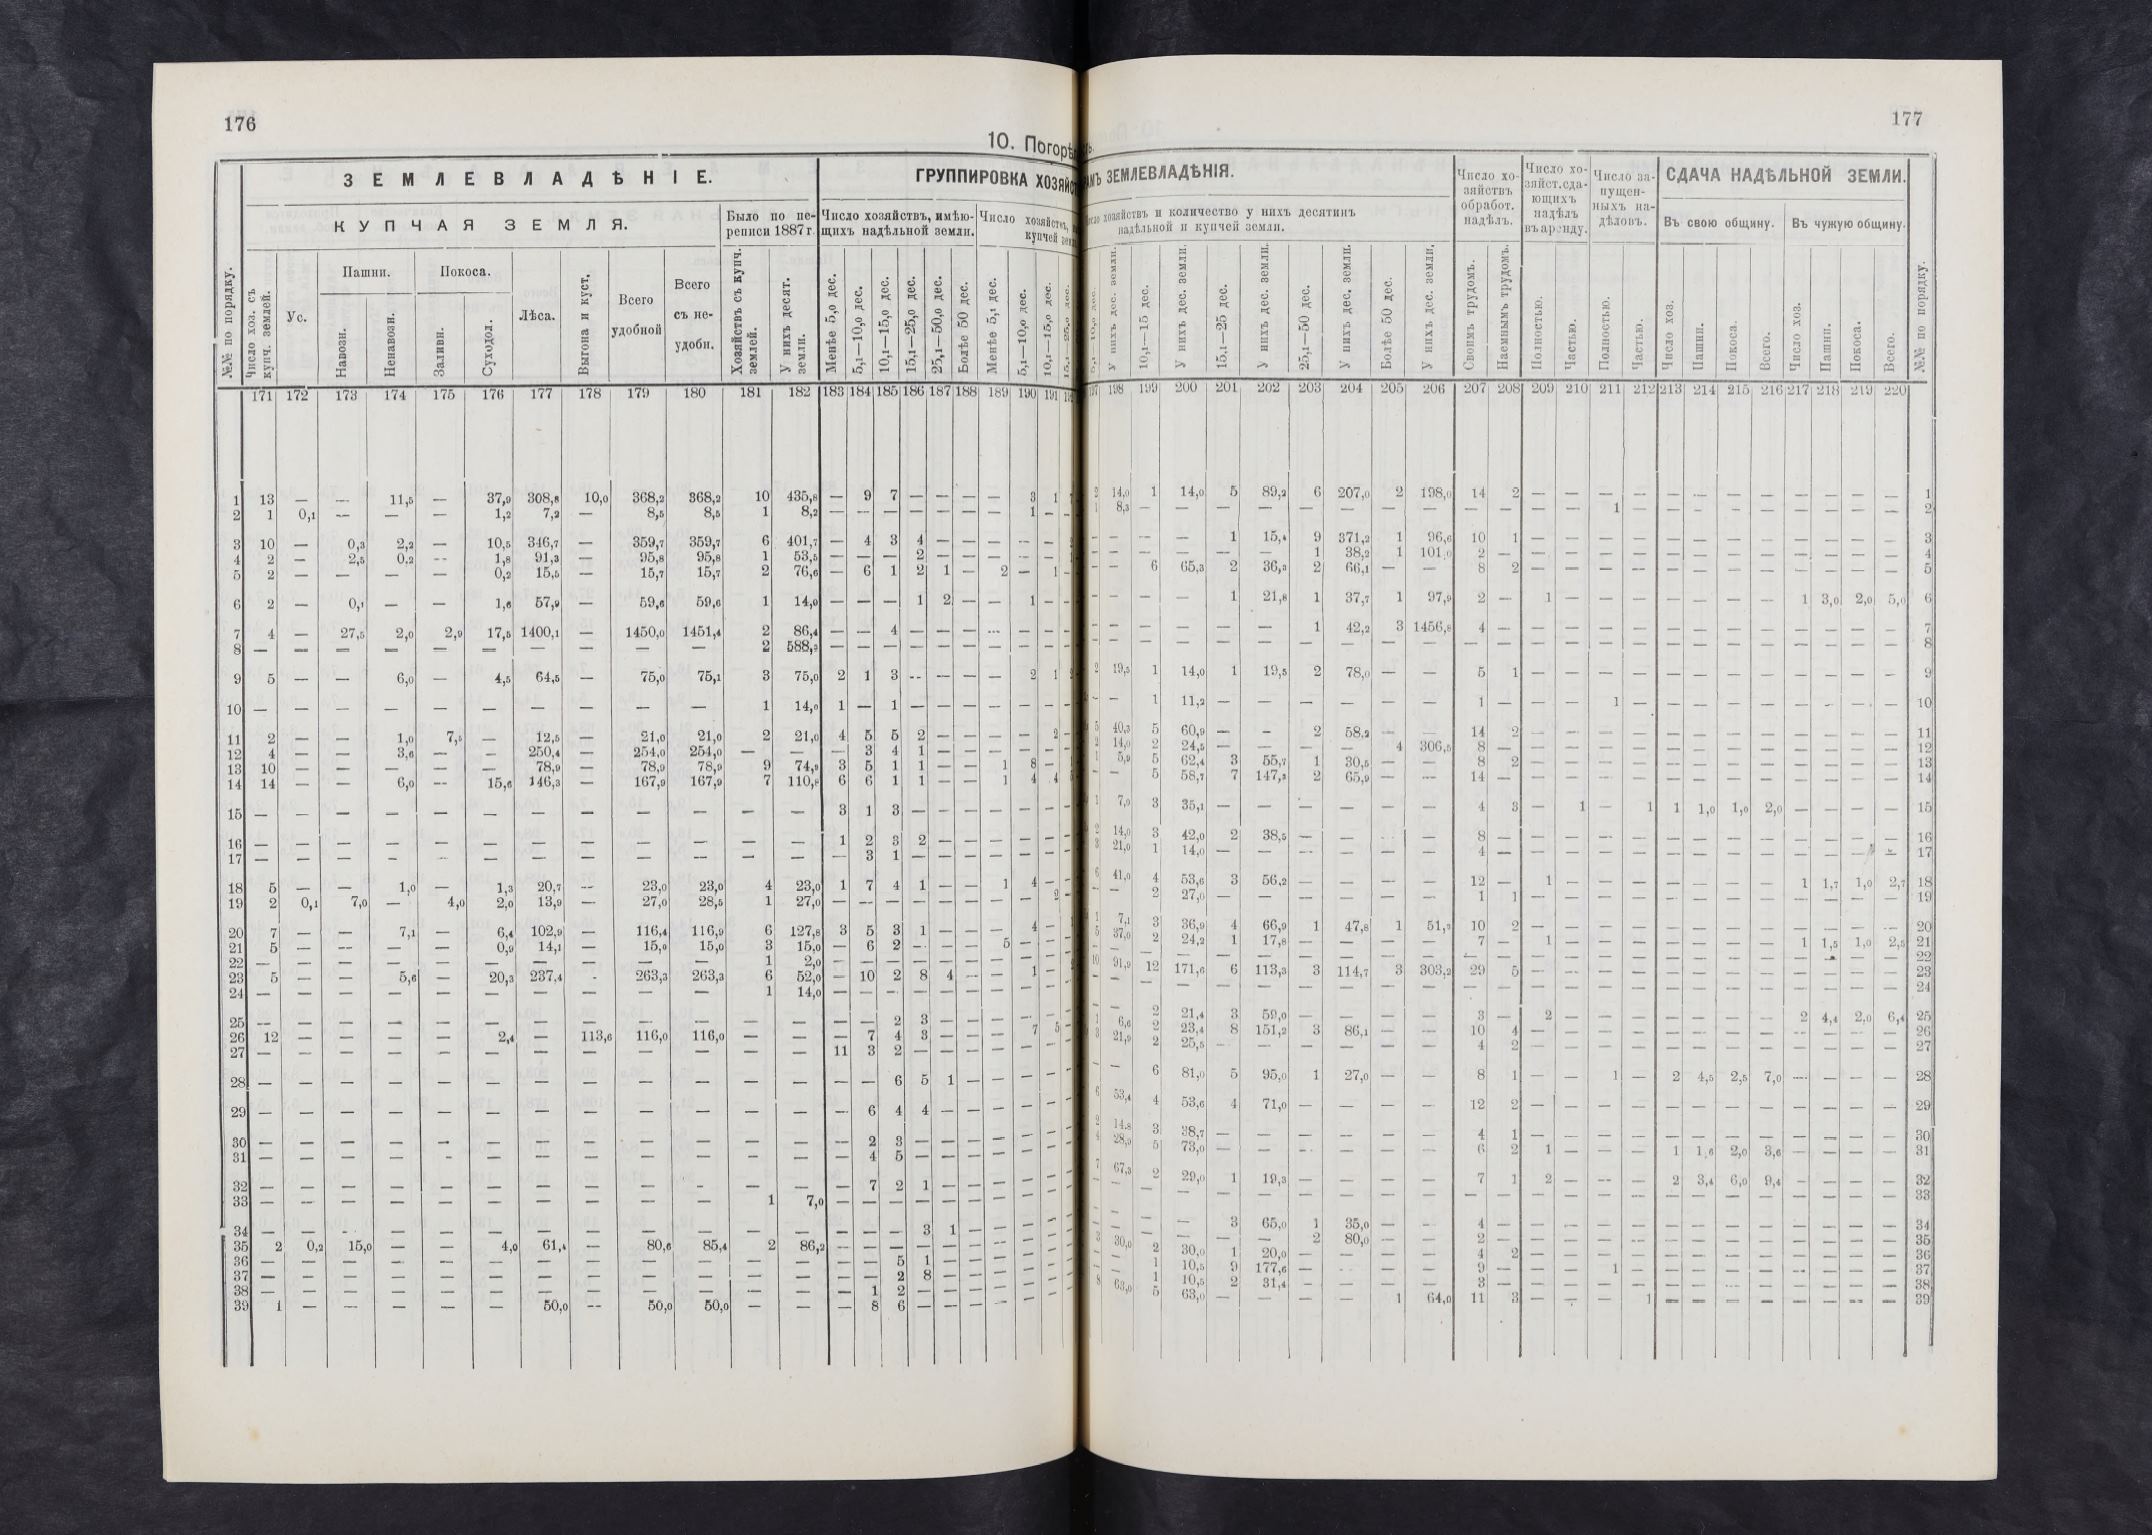 176
177
10. Погорѣ
ЗЕМЛЕВЛАДѢНІЕ.
ГРУППИРОВКА ХОЗЯЙСТ
АМЪ ЗЕМЛЕВЛАДѢНІЯ.
КУПЧАЯ ЗЕМЛЯ.
Было по переписи 1887 г.
Число хозяйствъ, имѣющихъ надѣльной земли.
Число хозяйствъ, купчей земл
хозяйствъ и количество у нихъ десятинъ
надѣльной и купчей земли.
Число хозяйствъ обработ. надѣлъ.
Число хозяйст. сдающихъ надѣлъ въ аренду.
Число запущенныхъ надѣловъ.
СДАЧА НАДѢЛЬНОЙ ЗЕМЛИ.
Въ свою общину. Въ чужую общину.
№№ по порядку. Число хоз. съ купч. землей. Ус. Пашни. Навозн. Ненавозн. Покоса. Заливн. Суходол. Лѣса. Выгона и куст. Всего удобной Всего съ неудобн. Хозяйствъ съ купч. землей. У нихъ десят. земли.
Менѣе 5,0 дес. 5,1—10,0 дес. 10,1—15,0 дес. 15,1—25,0 дес. 25,1—50,0 дес. Болѣе 50 дес. Менѣе 5,1 дес. 5,1—10,0 дес. 10,1—15,0 дес. 15,1—25,0 дес.
У нихъ дес. земли. 10,1—15 дес. У нихъ дес. земли. 15,1—25 дес. У нихъ дес. земли. 25,1—50 дес. У нихъ дес. земли. Болѣе 50 дес. У нихъ дес. земли.
Своимъ трудомъ. Наемнымъ трудомъ. Полностью. Частью. Полностью. Частью. Число хоз. Пашни. Покоса. Всего. Число хоз. Пашни. Покоса. Всего. №№ по порядку.
171 172 173 174 175 176 177 178 179 180 181 182 183 184 185 186 187 188 189 190 191
198 199 200 201 202 203 204 205 206 207 208 209 210 211 212 213 214 215 216 217 218 219 220
1 13 — — 11,5 — 37,9 308,8 10,0 368,2 368,2 10 435,8 — 9 7 — — — — 3 1
2 14,0 1 14,0 5 89,2 6 207,0 2 198,0 14 2 — — — — — — — — — — — — 1
2 1 0,1 — — — 1,2 7,2 — 8,5 8,5 1 8,2 — — — — — — — 1 —
1 8,3 — — — — — — — — — — — — 1 — — — — — — — — — 2
3 10 — 0,3 2,2 — 10,5 346,7 — 359,7 359,7 6 401,7 — 4 3 4 — — — — —
— — — — 1 15,4 9 371,2 1 96,6 10 1 — — — — — — — — — — — — 3
4 2 — 2,5 0,2 — 1,8 91,3 — 95,8 95,8 1 53,5 — — — 2 — — — — —
— — — — — — 1 38,2 1 101,0 2 — — — — — — — — — — — — — 4
5 2 — — — — 0,2 15,5 — 15,7 15,7 2 76,6 — 6 1 2 1 — 2 — 1
— — 6 65,3 2 36,3 2 66,1 — — 8 2 — — — — — — — — — — — — 5
6 2 — 0,1 — — 1,6 57,9 — 59,6 59,6 1 14,0 — — — 1 2 — — 1 —
— — — — 1 21,8 1 37,7 1 97,9 2 — 1 — — — — — — — 1 3,0 2,0 5,0 6
7 4 — 27,5 2,0 2,9 17,5 1400,1 — 1450,0 1451,4 2 86,4 — — 4 — — — — — —
— — — — — — 1 42,2 3 1456,8 4 — — — — — — — — — — — — — 7
8 — — — — — — — — — — 2 588,9 — — — — — — — — —
— — — — — — — — — — — — — — — — — — — — — — — — 8
9 5 — — 6,0 — 4,5 64,5 — 75,0 75,1 3 75,0 2 1 3 — — — — 2 1
2 19,5 1 14,0 1 19,5 2 78,0 — — 5 1 — — — — — — — — — — — — 9
10 — — — — — — — — — — 1 14,0 1 — 1 — — — — — —
— — 1 11,2 — — — — — — 1 — — — 1 — — — — — — — — — 10
11 2 — — 1,0 7,5 — 12,5 — 21,0 21,0 2 21,0 4 5 5 2 — — — — 2
5 40,3 5 60,9 — — 2 58,2 — — 14 2 — — — — — — — — — — — — 11
12 4 — — 3,6 — — 250,4 — 254,0 254,0 — — — 3 4 1 — — — — —
2 14,0 2 24,5 — — — — 4 306,5 8 — — — — — — — — — — — — — 12
13 10 — — — — — 78,9 — 78,9 78,9 9 74,9 3 5 1 1 — — 1 8 —
1 5,9 5 62,4 3 55,7 1 30,5 — — 8 2 — — — — — — — — — — — — 13
14 14 — — 6,0 — 15,6 146,3 — 167,9 167,9 7 110,8 6 6 1 1 — — 1 4 4
— — 5 58,7 7 147,3 2 65,9 — — 14 — — — — — — — — — — — — — 14
15 — — — — — — — — — — — — 3 1 3 — — — — — —
1 7,0 3 35,1 — — — — — — 4 3 — 1 — 1 1 1,0 1,0 2,0 — — — — 15
16 — — — — — — — — — — — — 1 2 3 2 — — — — —
2 14,0 3 42,0 2 38,5 — — — — 8 — — — — — — — — — — — — — 16
17 — — — — — — — — — — — — — 3 1 — — — — — —
3 21,0 1 14,0 — — — — — — 4 — — — — — — — — — — — — — 17
18 5 — — 1,0 — 1,3 20,7 — 23,0 23,0 4 23,0 1 7 4 1 — — 1 4 —
6 41,0 4 53,6 3 56,2 — — — — 12 — 1 — — — — — — — 1 1,7 1,0 2,7 18
19 2 0,1 7,0 — 4,0 2,0 13,9 — 27,0 28,5 1 27,0 — — — — — — — — 2
— — 2 27,0 — — — — — — 1 1 — — — — — — — — — — — — 19
20 7 — — 7,1 — 6,4 102,9 — 116,4 116,9 6 127,8 3 5 3 1 — — — 4 —
1 7,1 3 36,9 4 66,9 1 47,8 1 51,3 10 2 — — — — — — — — — — — — 20
21 5 — — — — 0,9 14,1 — 15,0 15,0 3 15,0 — 6 2 — — — 5 — —
5 37,0 2 24,2 1 17,8 — — — — 7 — 1 — — — — — — — 1 1,5 1,0 2,5 21
22 — — — — — — — — — — 1 2,0 — — — — — — — — —
— — — — — — — — — — — — — — — — — — — — — — 22
23 5 — — 5,6 — 20,3 237,4 — 263,3 263,3 6 52,0 — 10 2 8 4 — — 1 —
10 91,9 12 171,6 6 113,3 3 114,7 3 303,2 29 5 — — — — — — — — — — — — 23
24 — — — — — — — — — — 1 14,0 — — — — — — — — —
— — — — — — — — — — — — — — — — — — — — — — 24
25 — — — — — — — — — — — — — — 2 3 — — — — —
— — 2 21,4 3 59,0 — — — — 3 — 2 — — — — — — — 2 4,4 2,0 6,4 25
26 12 — — — — 2,4 — 113,6 116,0 116,0 — — — 7 4 3 — — — 7 5
1 6,6 2 23,4 8 151,2 3 86,1 — — 10 4 — — — — — — — — — — — — 26
27 — — — — — — — — — — — — 11 3 2 — — — — — —
3 21,9 2 25,5 — — — — — — 4 2 — — — — — — — — — — — — 27
28 — — — — — — — — — — — — — — 6 5 1 — — — —
— — 6 81,0 5 95,0 1 27,0 — — 8 1 — — 1 — 2 4,5 2,5 7,0 — — — — 28
29 — — — — — — — — — — — — — 6 4 4 — — — — —
6 53,4 4 53,6 4 71,0 — — — — 12 2 — — — — — — — — — — — — 29
30 — — — — — — — — — — — — — 2 3 — — — — — —
2 14,8 3 38,7 — — — — — — 4 1 — — — — — — — — — — — — 30
31 — — — — — — — — — — — — — 4 5 — — — — — —
4 28,9 5 73,0 — — — — — — 6 2 1 — — — 1 1,6 2,0 3,6 — — — — 31
32 — — — — — — — — — — — — — 7 2 1 — — — — —
7 67,3 2 29,0 1 19,3 — — — — 7 1 2 — — — 2 3,4 6,0 9,4 — — — — 32
33 — — — — — — — — — — 1 7,0 — — — — — — — — —
— — — — — — — — — — — — — — — — — — — — — — 33
34 — — — — — — — — — — — — — — — 3 1 — — — —
— — — — 3 65,0 1 35,0 — — 4 — — — — — — — — — — — — — 34
35 2 0,2 15,0 — — 4,0 61,4 — 80,6 85,4 2 86,2 — — — — — — — — —
— — — — — — 2 80,0 — — 2 — — — — — — — — — — — — — 35
36 — — — — — — — — — — — — — — 5 1 — — — — —
3 30,0 2 30,0 1 20,0 — — — — 4 2 — — — — — — — — — — — — 36
37 — — — — — — — — — — — — — — 2 8 — — — — —
— — 1 10,5 9 177,6 — — — — 9 — — — 1 — — — — — — — — — 37
38 — — — — — — — — — — — — — 1 2 — — — — — —
— — 1 10,5 2 31,4 — — — — 3 — — — — — — — — — — — — — 38
39 1 — — — — — 50,0 — 50,0 50,0 — — — 8 6 — — — — — —
8 63,0 5 63,0 — — — — 1 64,0 11 3 — — — 1 — — — — — — — — 39